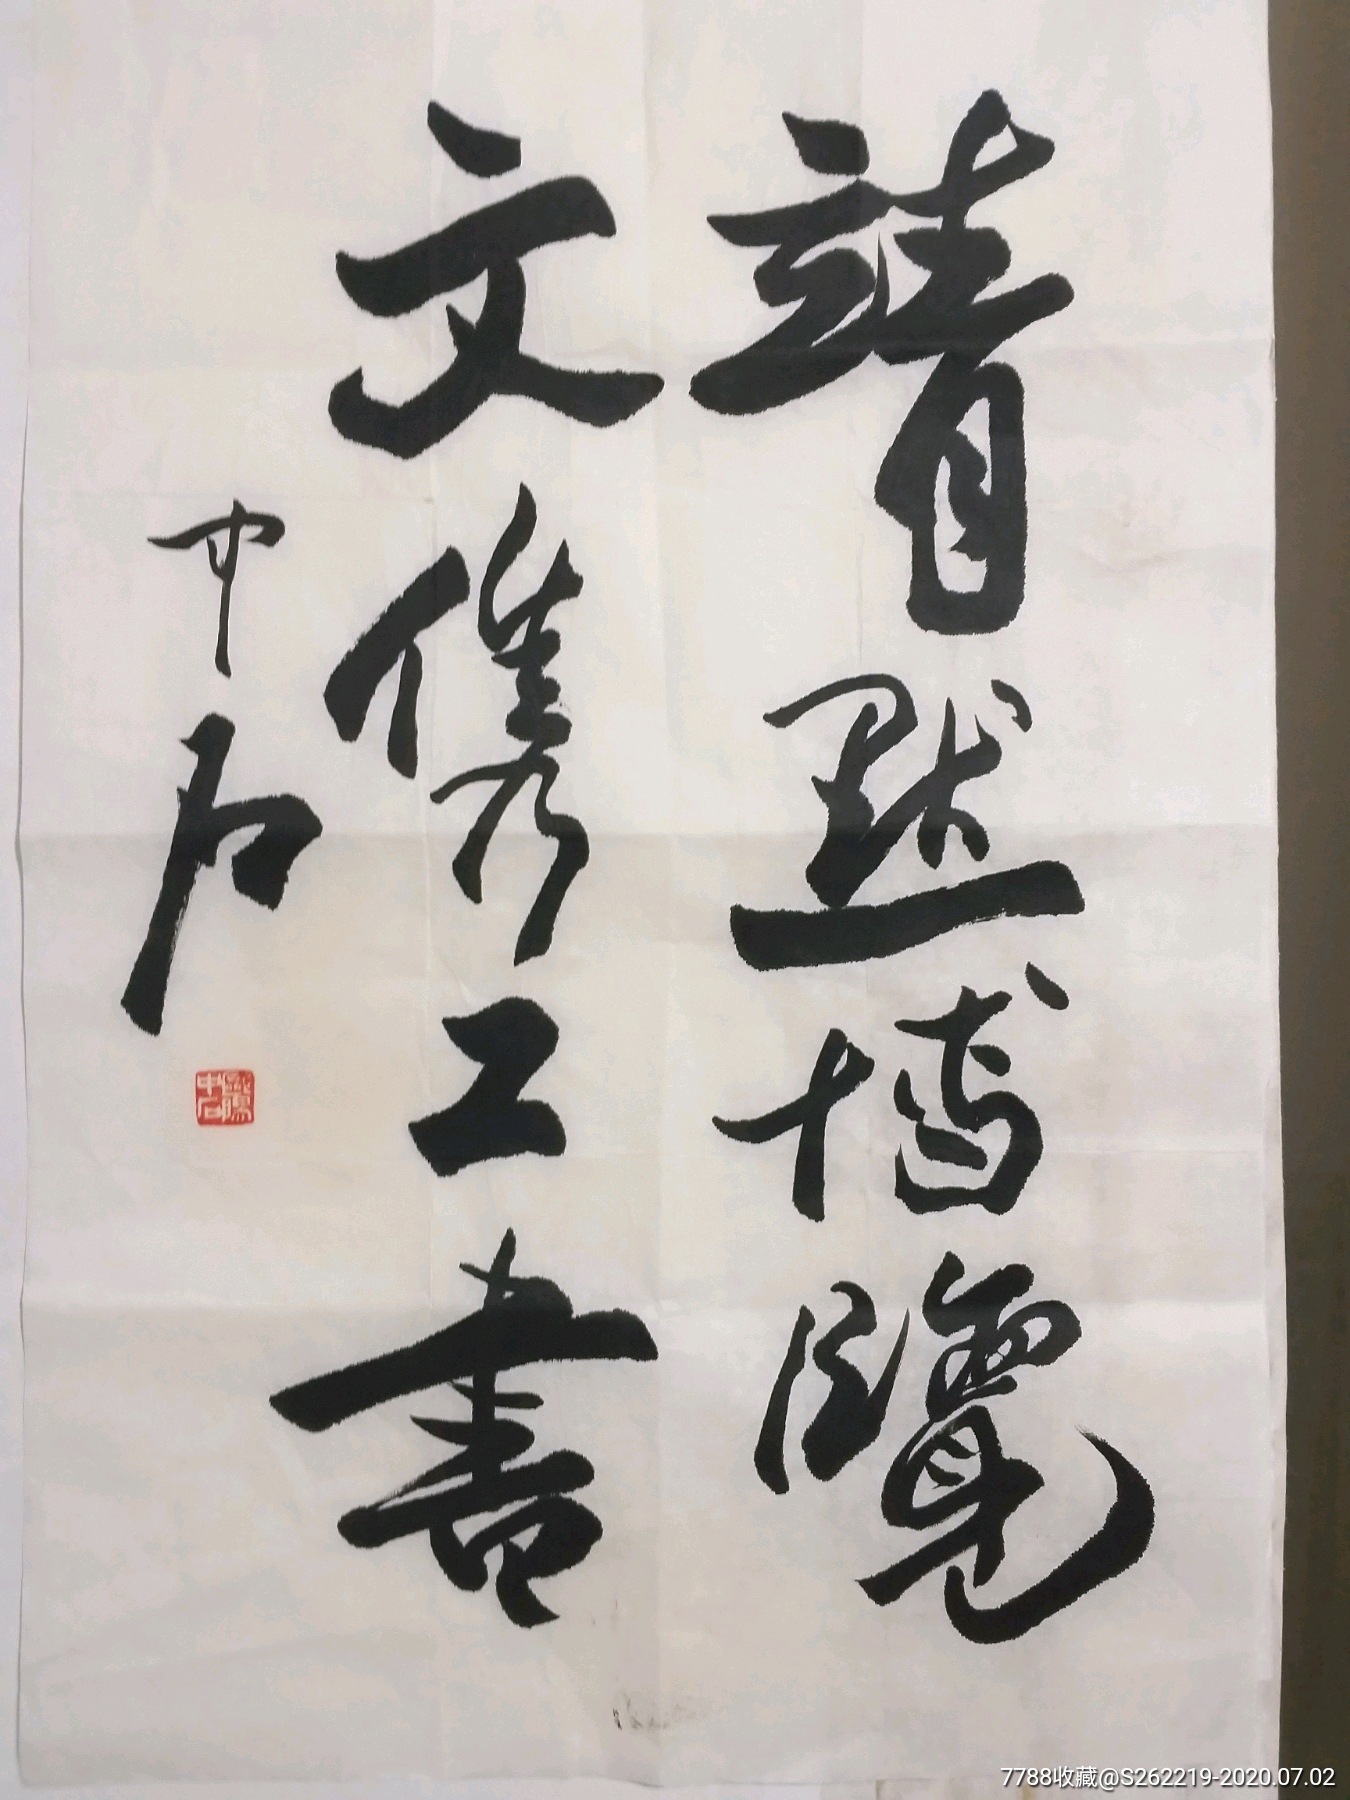 靖默博覽
文儁工書
中石
歐陽中石
7788收藏@S262219-2020.07.02